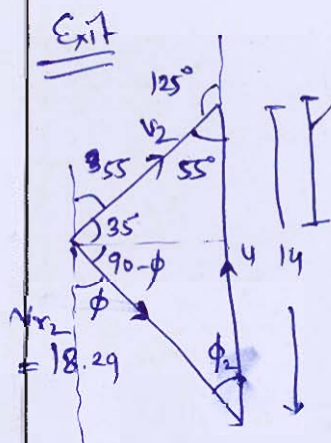 Exit
125°
V2
55 55°
35
90-ϕ u 14
ϕ
Vr2 ϕ2
= 18.29